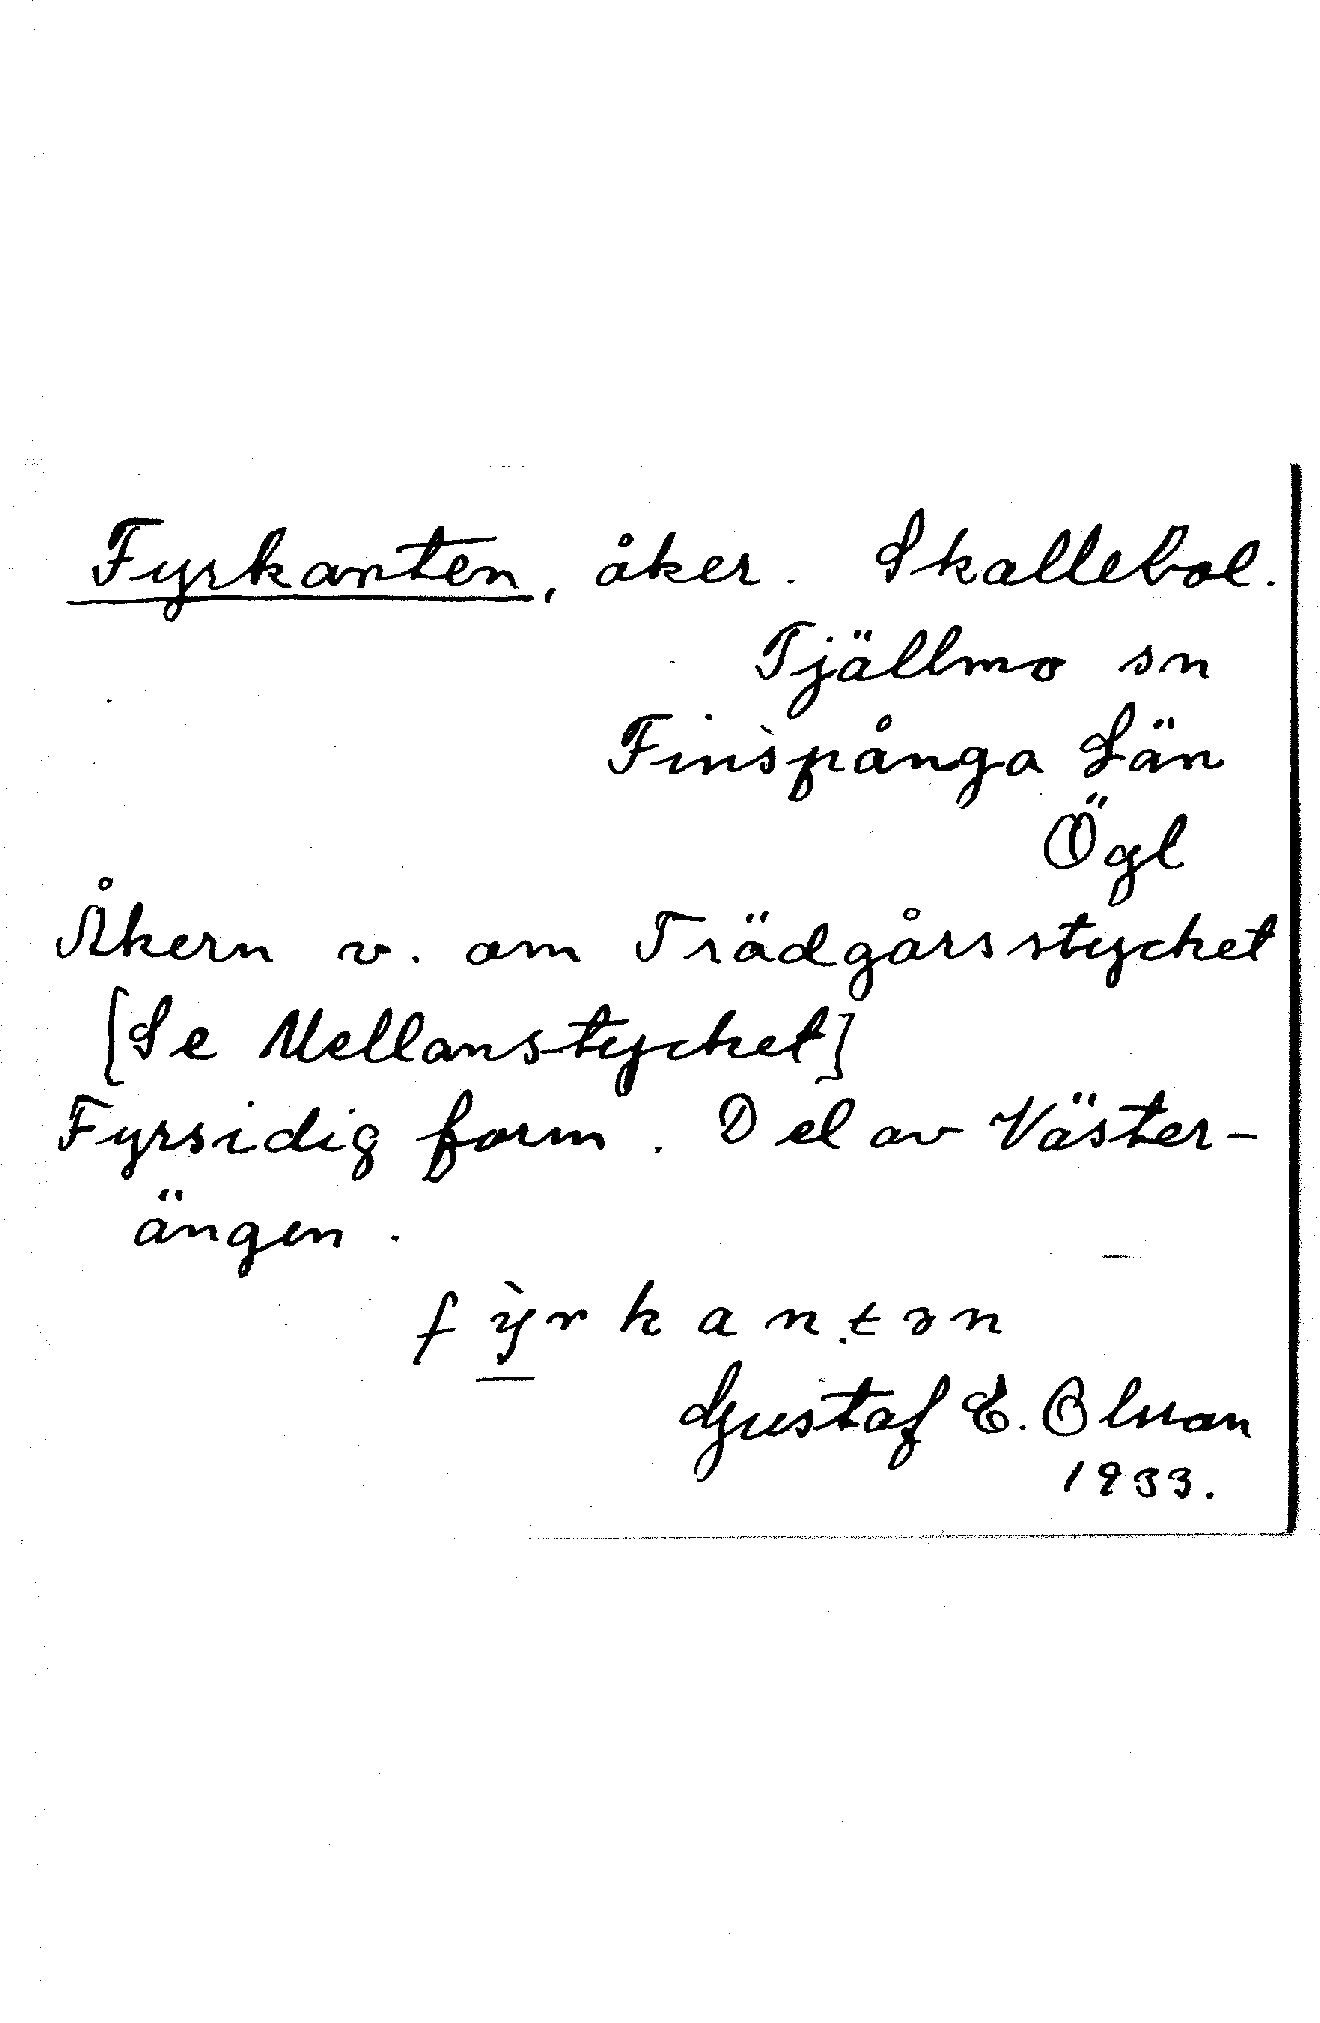 Fyrkanten, åker. Skallebol.
Tjällmo sn
Finspånga Län
Ögl
Åkern v. om Trädgårsstycket
[Se Mellanstycket]
Fyrsidig form. Del av Väster-
ängen.
fỳ̱rkantən
Gustaf E.
1933.